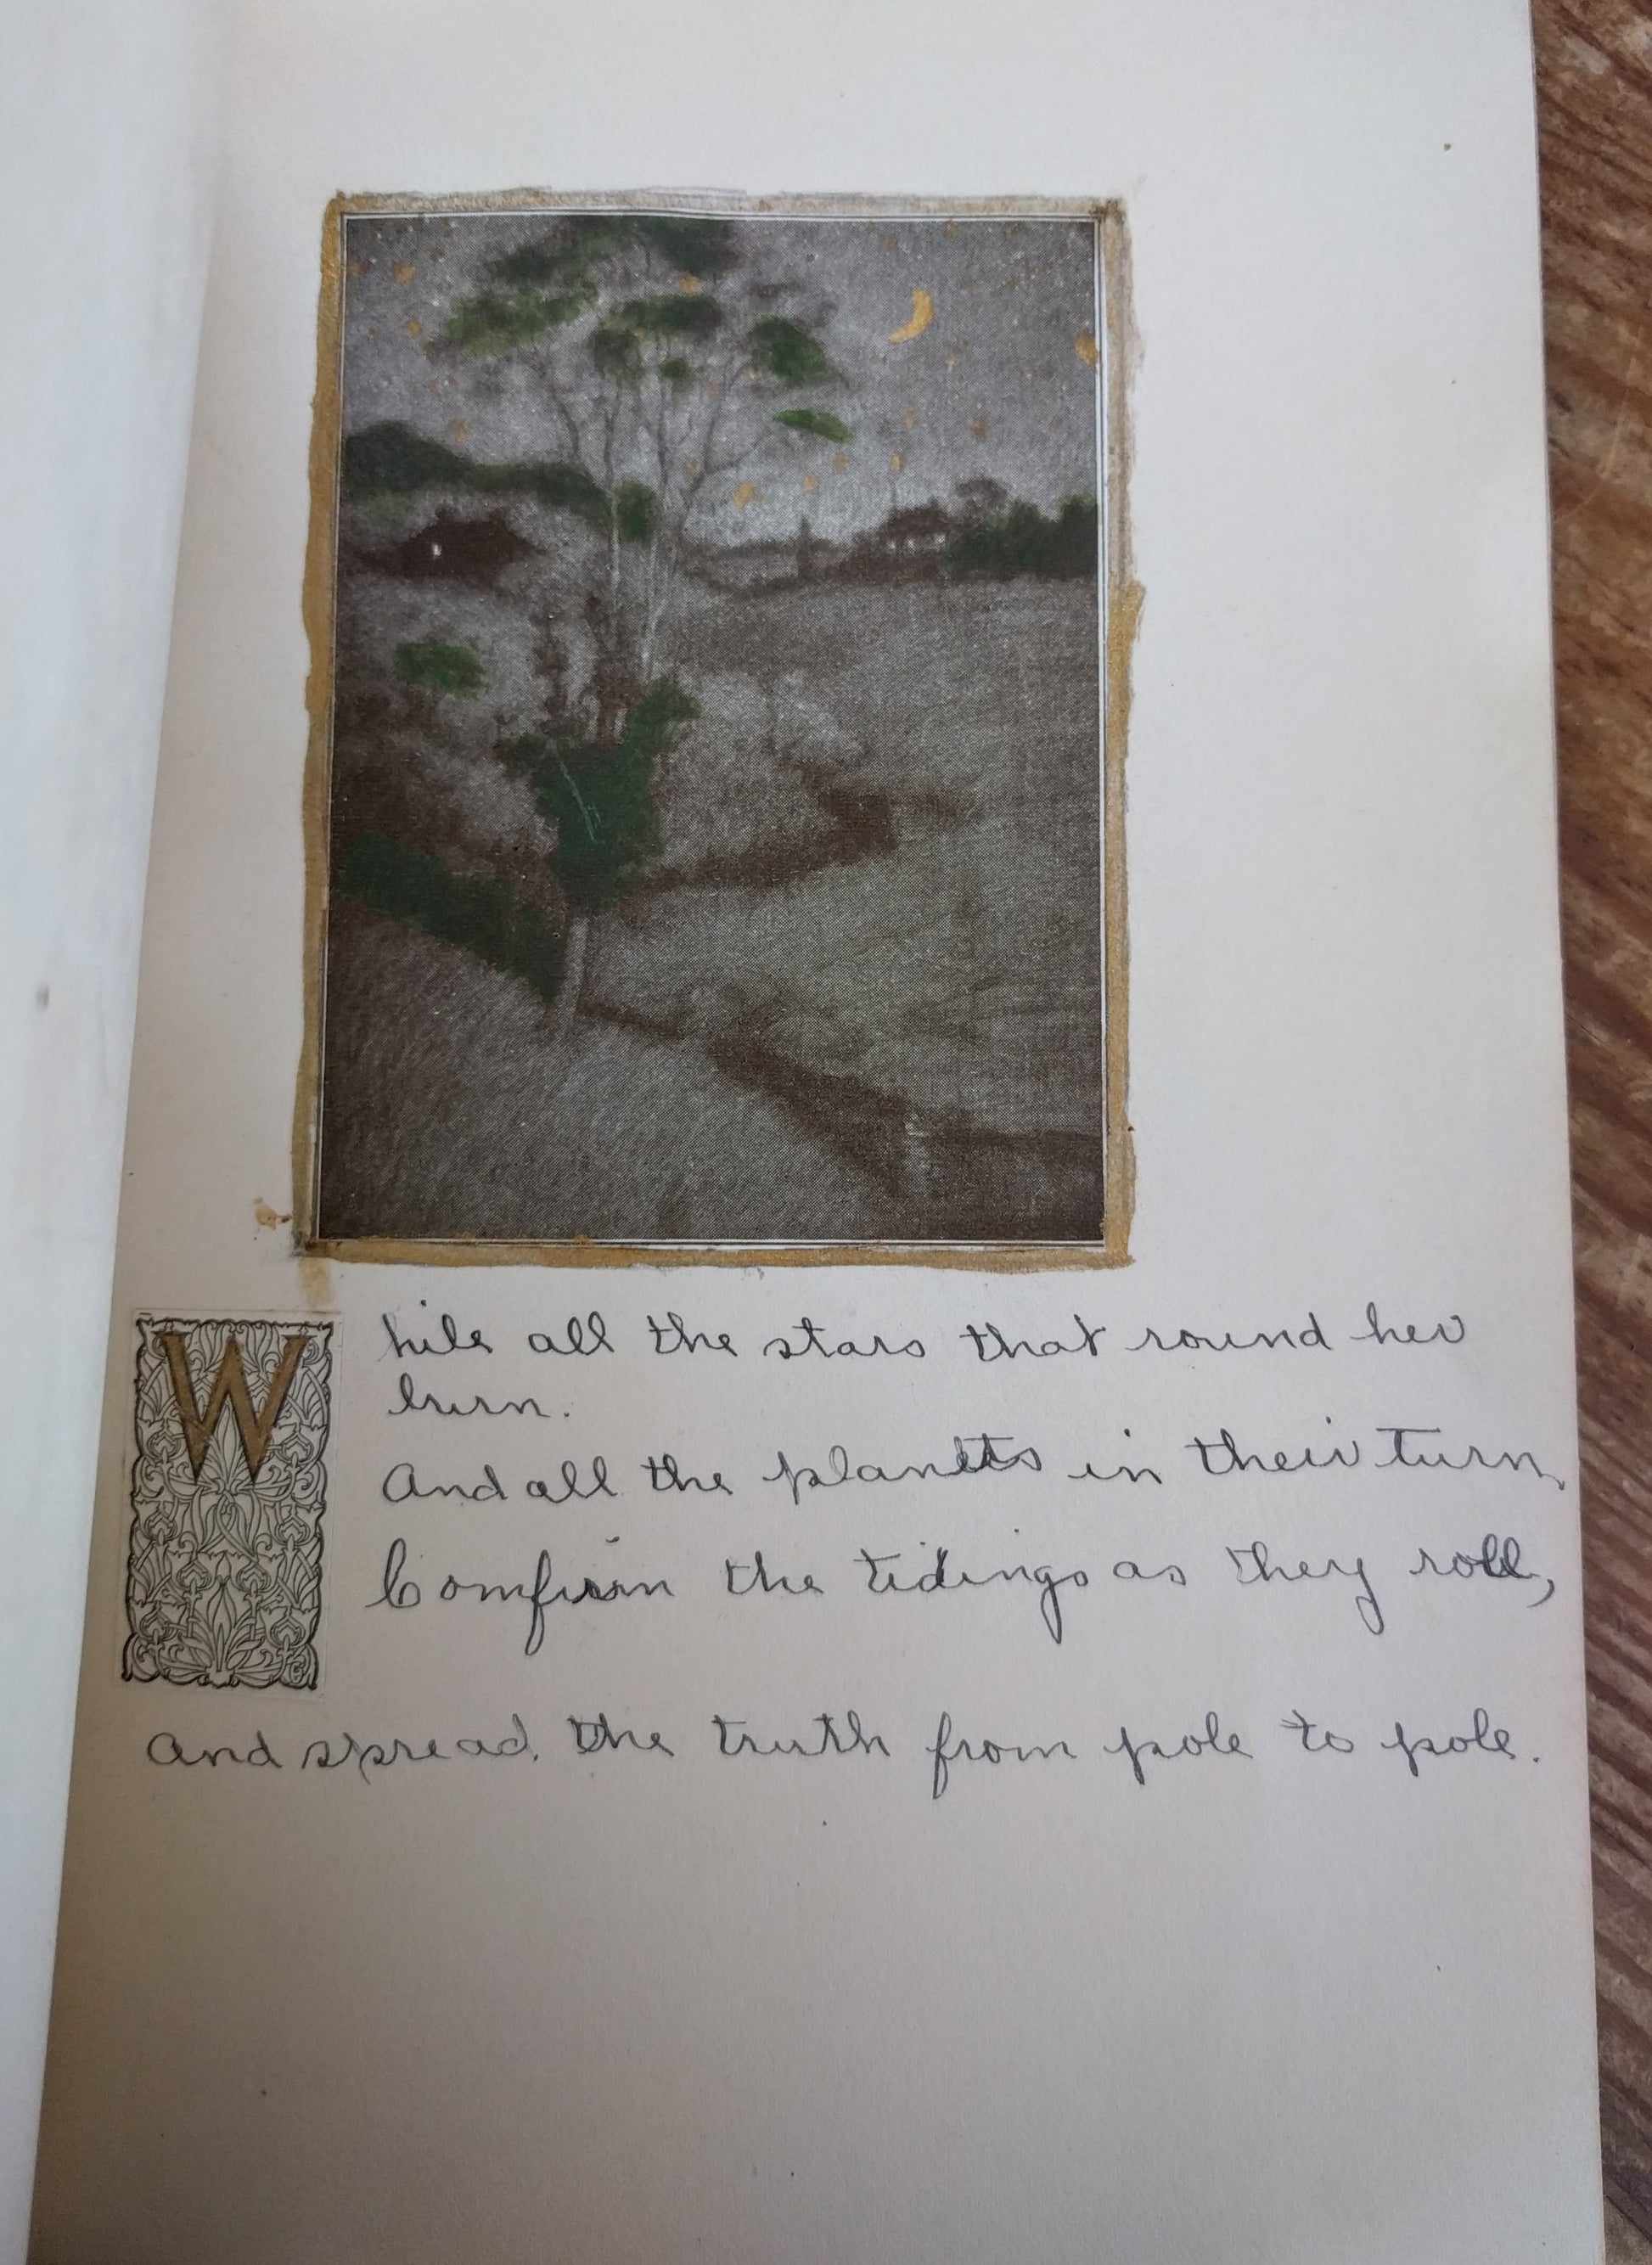 While all the stars that round her
burn.
And all the planets in their turn,
Comfirm the tidings as they roll,
And spread the truth from pole to pole.